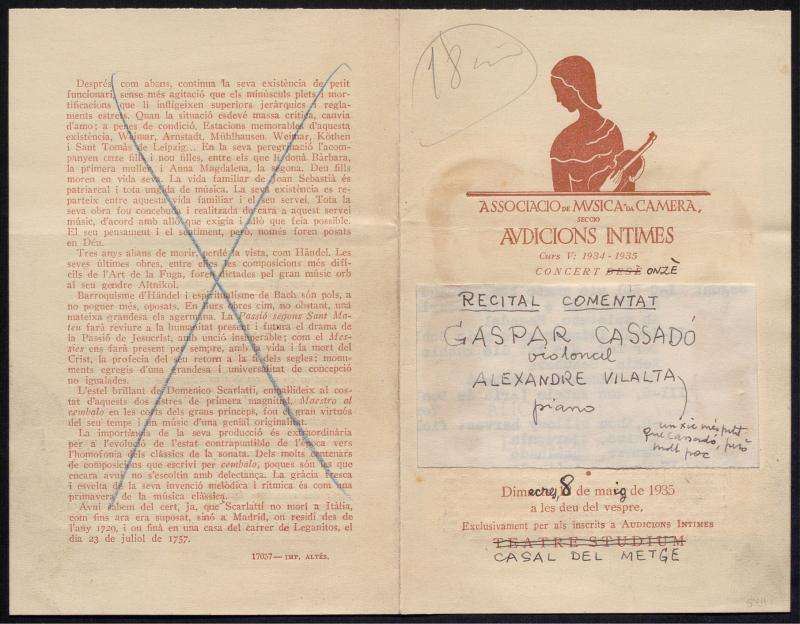 Després, com abans, continua la seva existència de petit
funcionari, sense més agitació que els minúsculs plets i mor-
tificacions que li infligeixen superiors jeràrquics i regla-
ments estrets. Quan la situació esdevé massa crítica, canvia
d'amo; a penes de condició. Estacions memorables d'aquesta
existència, Weimar, Arnstadt, Mühlhausen, Weimar, Köthen
i Sant Tomàs de Leipzig... En la seva peregrinació l'acom-
panyen onze fills i nou filles, entre els que li donà Bàrbara,
la primera muller, i Anna Magdalena, la segona. Deu fills
moren en vida seva. La vida familiar de Joan Sebastià és
patriarcal i tota ungida de música. La seva existència es re-
parteix entre aquesta vida familiar i el seu servei. Tota la
seva obra fou concebuda i realitzada de cara a aquest servei
músic, d'acord amb allò que exigia i allò que feia possible.
El seu pensament i el sentiment, però, només foren posats
en Déu.
Tres anys abans de morir, perdé la vista, com Händel. Les
seves últimes obres, entre elles les composicions més difí-
cils de l'Art de la Fuga, foren dictades pel gran músic orb
al seu gendre Altnikol.
Barroquisme d'Händel i espiritualisme de Bach són pols, a
no poguer més, oposats. En llurs obres cim, no obstant, una
mateixa grandesa els agermana. La Passió segons Sant Ma-
teu farà reviure a la humanitat present i futura el drama de
la Passió de Jesucrist, amb unció insuperable; com el Mes-
sies ens farà present per sempre, amb la vida i la mort del
Crist, la profecia del seu retorn a la fi dels segles; monu-
ments egregis d'una grandesa i universitat de concepció
no igualades.
L'estel brillant de Domenico Scarlatti, empal·lideix al cos-
tat d'aquests dos astres de primera magnitud. Maestro al
cembalo en les corts dels grans prínceps, fou un gran virtuós
del seu temps i un músic d'una genial originalitat.
La importància de la seva producció és extraordinària
per a l'evolució de l'estat contrapuntible de l'època vers
l'homofonia dels clàssics de la sonata. Dels molts centenars
de composicions que escriví per cembalo, poques són les que
encara avui no s'escoltin amb delectança. La gràcia fresca
i esvelta de la seva invenció melòdica i rítmica és com una
primavera de la música clàssica.
Avui sabem del cert, ja, que Scarlatti no morí a Itàlia,
com fins ara era suposat, sinó a Madrid, on residí des de
l'any 1729, i on finà en una casa del carrer de Leganitos, el
dia 23 de juliol de 1757.
17057 — IMP. ALTÉS.
18
ASSOCIACIO DE MVSICA DA CAMERA,
SECCIO
AVDICIONS INTIMES
Curs V: 1934 - 1935
CONCERT DESÈ ONZÈ
RECITAL COMENTAT
GASPAR CASSADÓ
violoncel
ALEXANDRE VILALTA
piano
un xic més petit
que Cassadó, però
molt poc
Dimecres, 8 de maig de 1935
a les deu del vespre,
Exclusivament per als inscrits a AUDICIONS INTIMES
TEATRE STUDIUM
CASAL DEL METGE